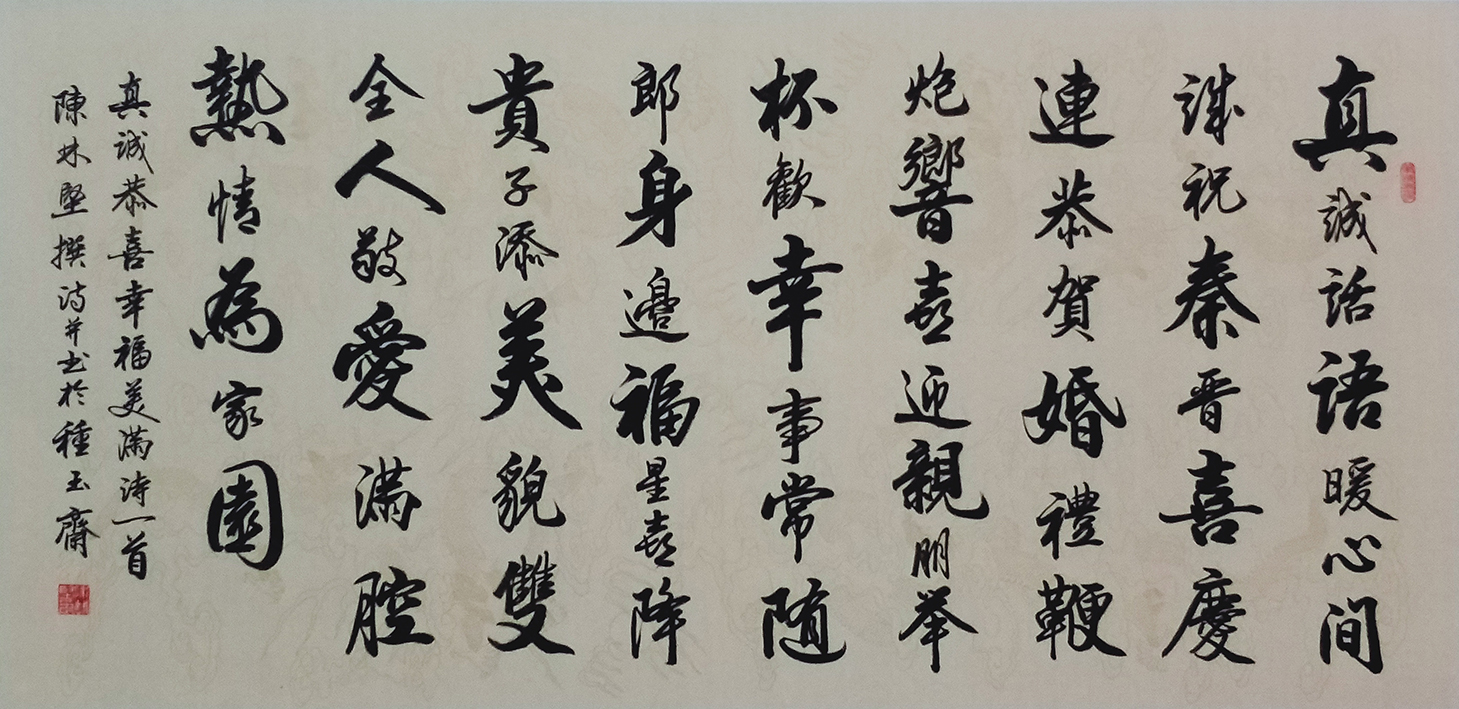 真誠話語暖心间
誠祝秦晋喜慶
連恭賀婚禮鞭
炮響喜迎親朋举
杯歡幸事常随
郎身邊福星喜降
貴子添美貌雙
全人敬愛满腔
熱情為家園
真诚恭喜幸福美满诗一首
陳林堅撰诗并书於種玉齋